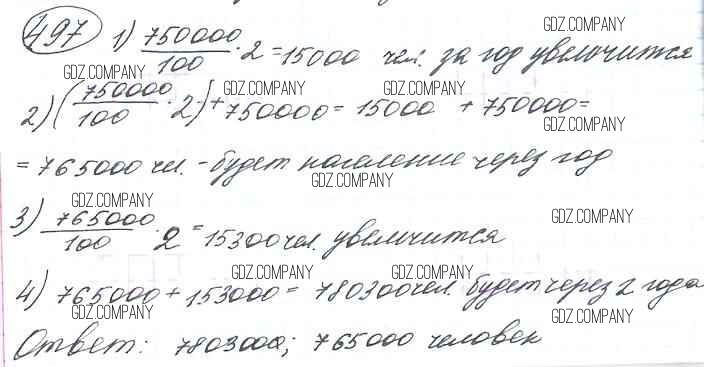 GDZ.COMPANY
497 1) 750000/100 · 2 = 15000 чел. за год увеличится
GDZ.COMPANY GDZ.COMPANY GDZ.COMPANY
2) (750000/100 · 2) + 750000 = 15000 + 750000 =
GDZ.COMPANY
= 765000 чел. - будет население через год
GDZ.COMPANY
GDZ.COMPANY GDZ.COMPANY
3) 765000/100 · 2 = 15300 чел. увеличится
GDZ.COMPANY GDZ.COMPANY
4) 765000 + 153000 = 780300 чел. будет через 2 года
GDZ.COMPANY GDZ.COMPANY
Ответ: 780300; 765000 человек